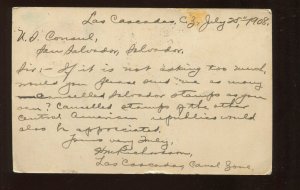 Las Cascadas, C.Z., July 25th 1908.
U.S. Consul,
San Salvador, Salvador.
Sir;- If it is not asking too much,
would you please send me as many
cancelled Salvador stamps as you
can? Cancelled stamps of the other
Central American republics would
also be appreciated.
Yours very truly,
Richardson,
Las Cascadas, Canal Zone.